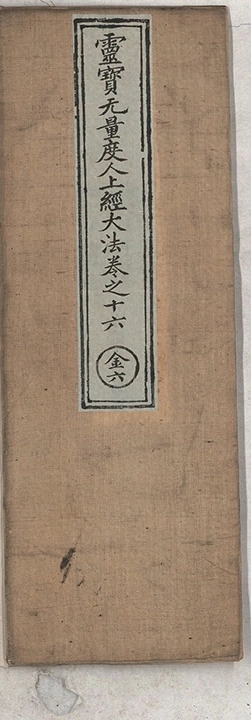 靈寶无量度人上經大法卷之十六
金六